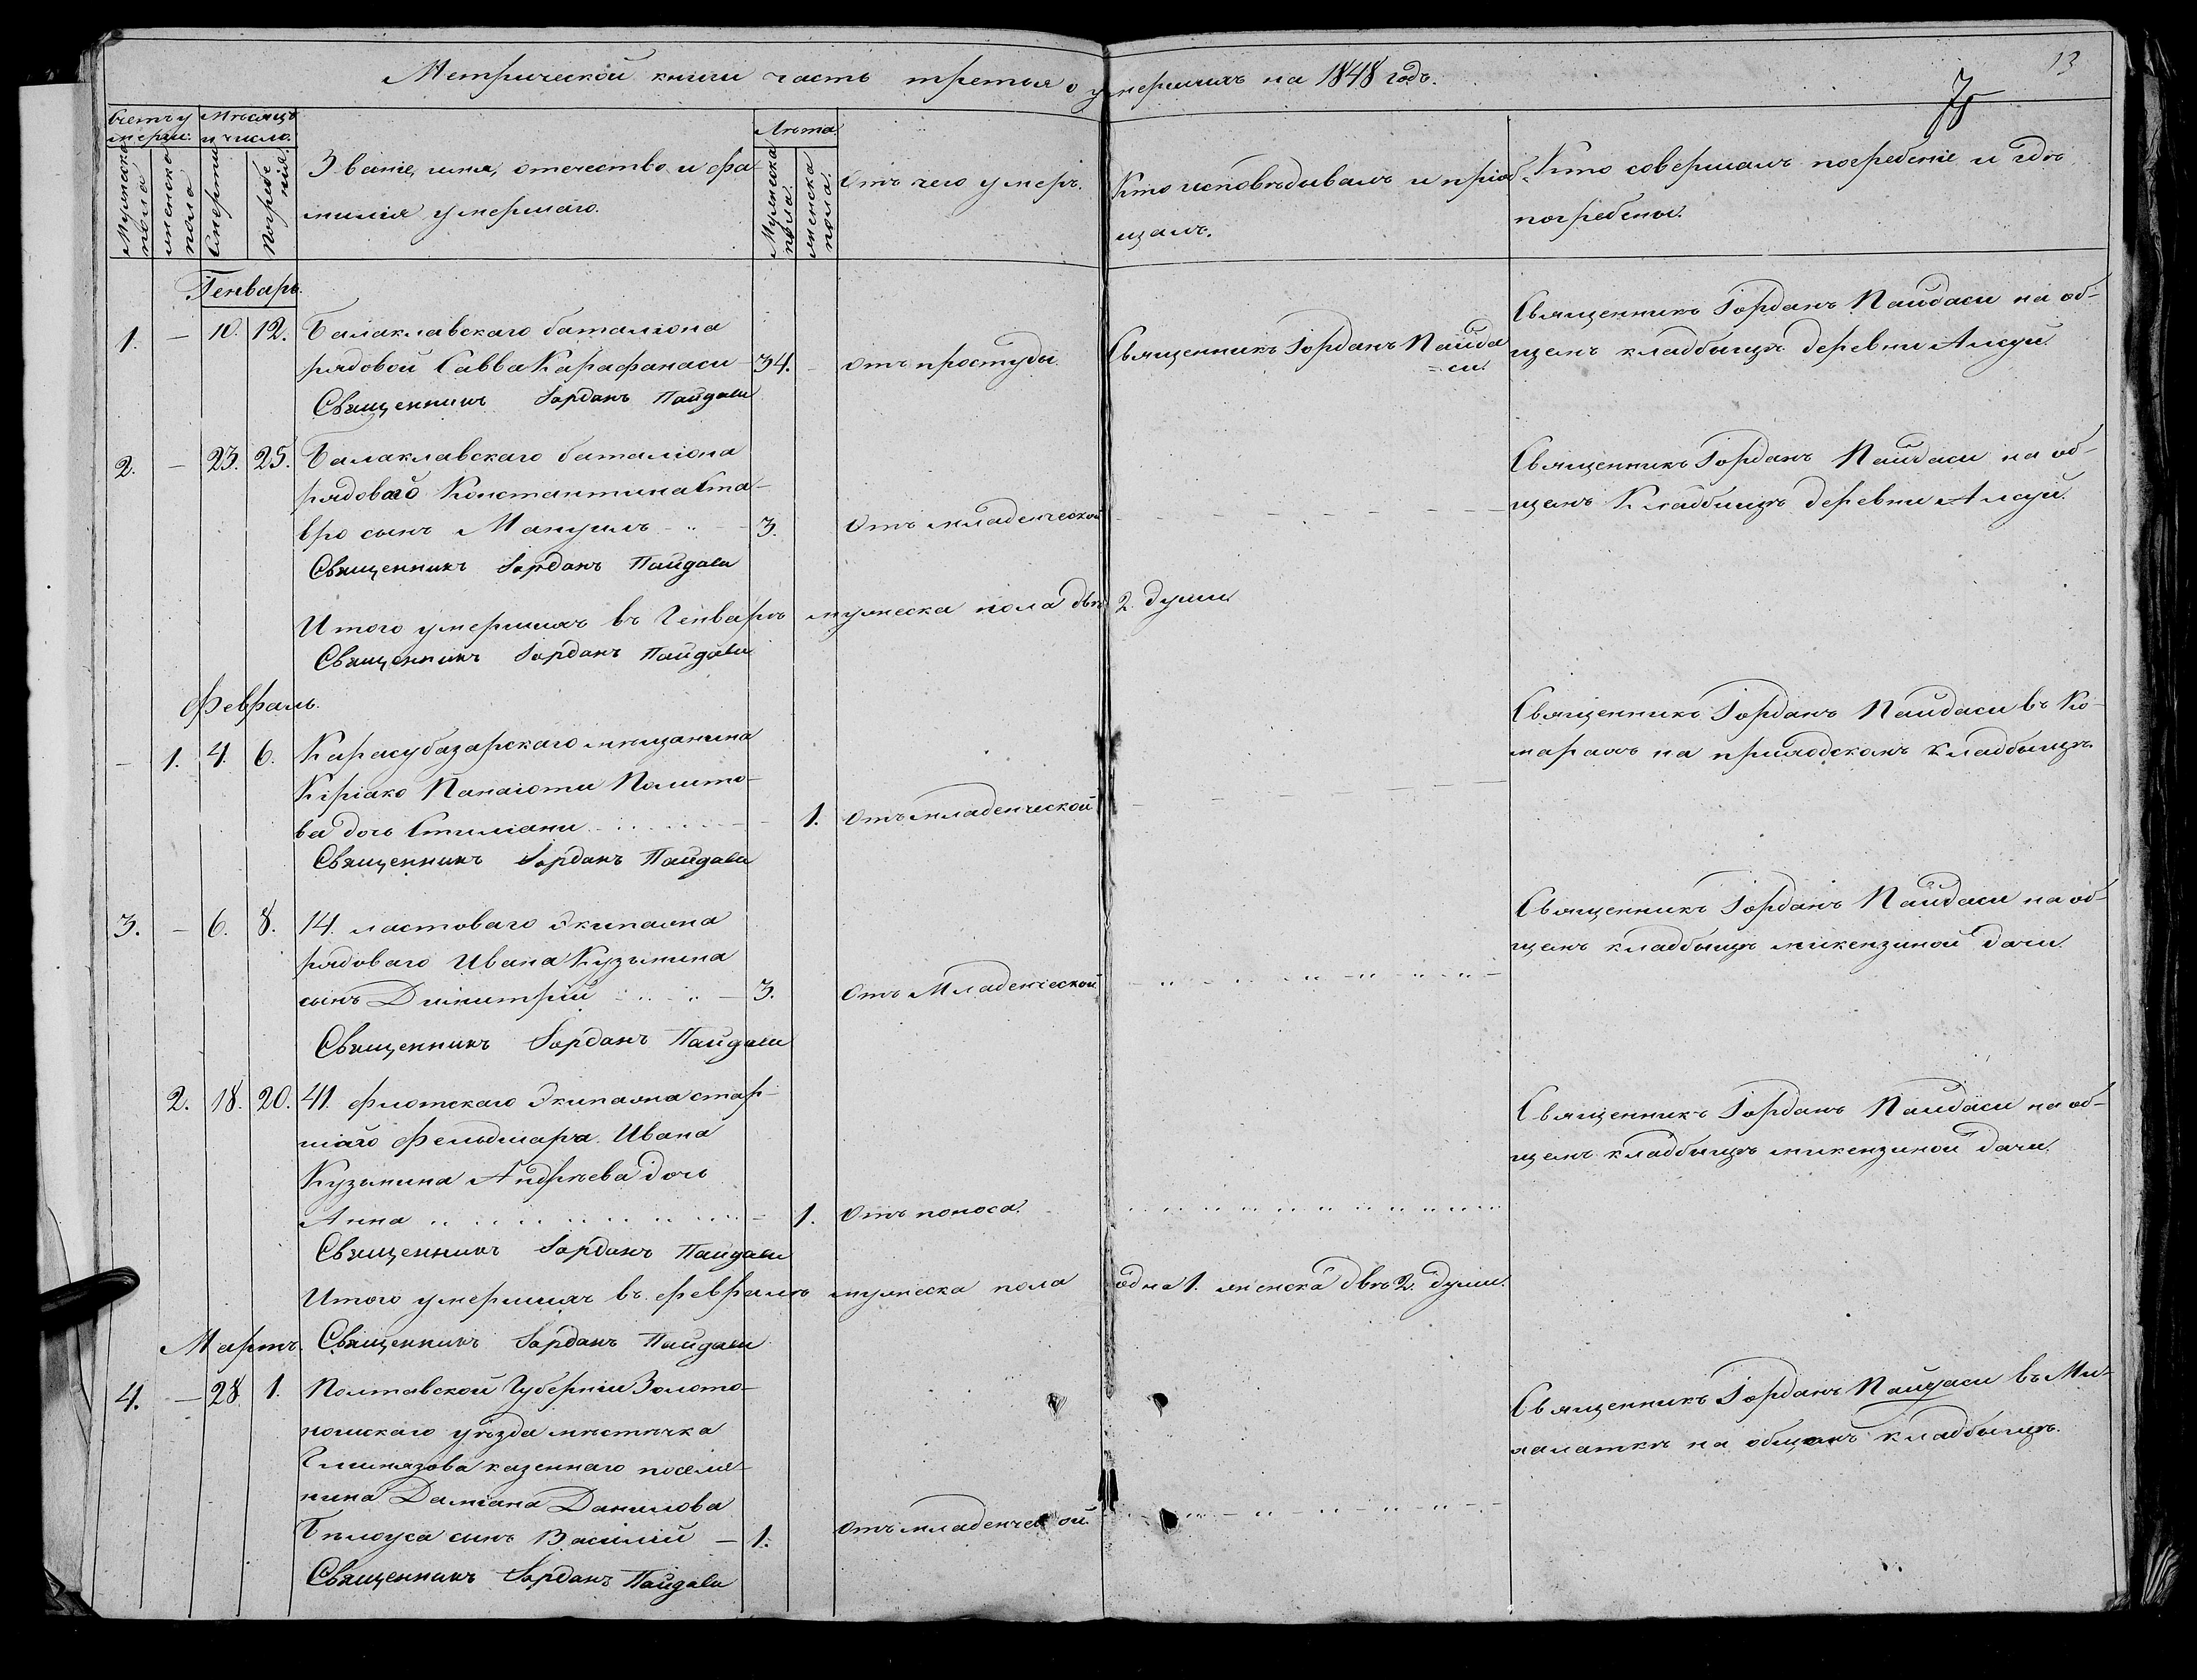 Метрической книги часть третья о умершихъ на 1848 годъ.
13
Счетъ умерш.
Мѣсяцъ и число.
Званіе, имя, отечество и фа-
милія умершаго.
Лѣта.
Отъ чего умеръ.
Кто исповѣдывалъ и пріоб-
щалъ.
Кто совершалъ погребеніе и гдѣ
погребены.
Мужеска пола
женска пола
Смерти
Погребенія.
Мужеска пола.
женска пола.
Генварь.
1. — 10. 12. Балаклавскаго баталіона
рядовой Савва Карафанаси — 34. отъ простуды. Священникъ Іорданъ Пайда
=си.
Священникъ Іорданъ Пайдаси на об-
щемъ кладбищѣ деревни Алсуй.
Священникъ Іорданъ Пайдаси
2. — 23. 25. Балаклавскаго баталіона
рядоваго Константина Ста-
вро сынъ Мануилъ — 3. Отъ младенческой
Священникъ Іорданъ Пайдаси на об-
щемъ Кладбищѣ деревни Алсуй.
Священникъ Іорданъ Пайдаси
Итого умершихъ въ Генварѣ мужеска пола двѣ 2. души.
Священникъ Іорданъ Пайдаси
Февраль.
— 1. 4. 6. Карасубазарскаго мѣщанина
Киріако Панаіоти Полито-
ва дочь Стиліани 1. Отъ младенческой
Священникъ Іорданъ Пайдаси въ Ко-
марахъ на приходскомъ кладбищѣ.
Священникъ Іорданъ Пайдаси
3. — 6. 8. 14. ластоваго Экипажа
рядоваго Ивана Кузьмина
сынъ Димитрій — 3. Отъ Младенческой
Священникъ Іорданъ Пайдаси на об-
щемъ кладбищѣ микензиной дачи.
Священникъ Іорданъ Пайдаси
2. 18. 20. 41. флотскаго Экипажа стар-
шаго Фельдшара Ивана
Кузьмина Андрѣева дочь
Анна 1. Отъ поноса.
Священникъ Іорданъ Пайдаси на об-
щемъ кладбищѣ микензиной дачи.
Священникъ Іорданъ Пайдаси
Итого умершихъ въ февралѣ мужеска пола одна 1. женска двѣ 2. души.
Священникъ Іорданъ Пайдаси
Мартъ.
4. — 28. 1. Полтавской Губерніи Золото-
ношскаго уѣзда мѣстѣчка
Гельмязова казеннаго поселя-
нина Даміана Данилова
Бѣлоуса сынъ Василій — 1. Отъ младенческой.
Священникъ Іорданъ Пайдаси въ Ми-
халаткѣ на общемъ кладбищѣ.
Священникъ Іорданъ Пайдаси